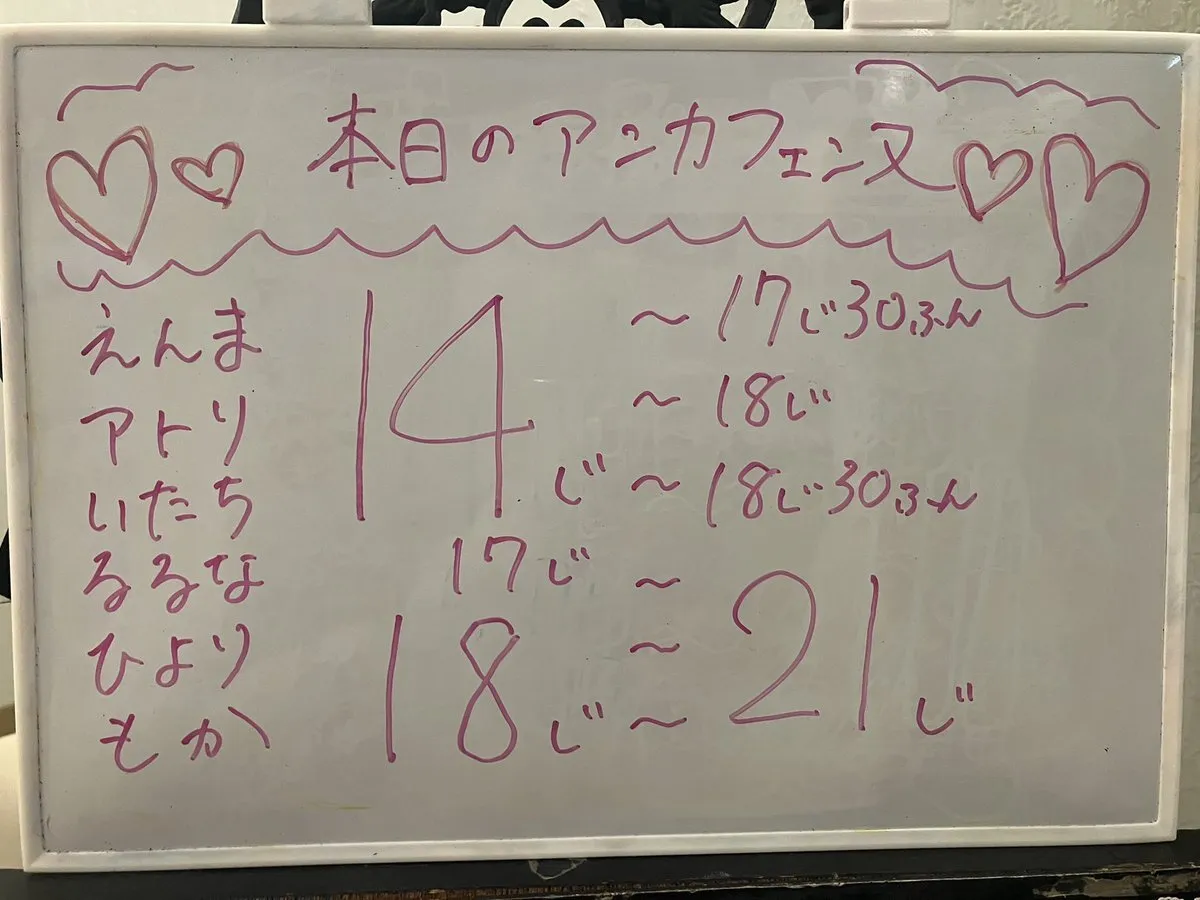 本日のアンカフェンヌ
えんま 14じ ~ 17じ30ふん
アトリ ~ 18じ
いたち ~ 18じ30ふん
るるな 17じ ~ 21じ
ひより 18じ ~
もか ~